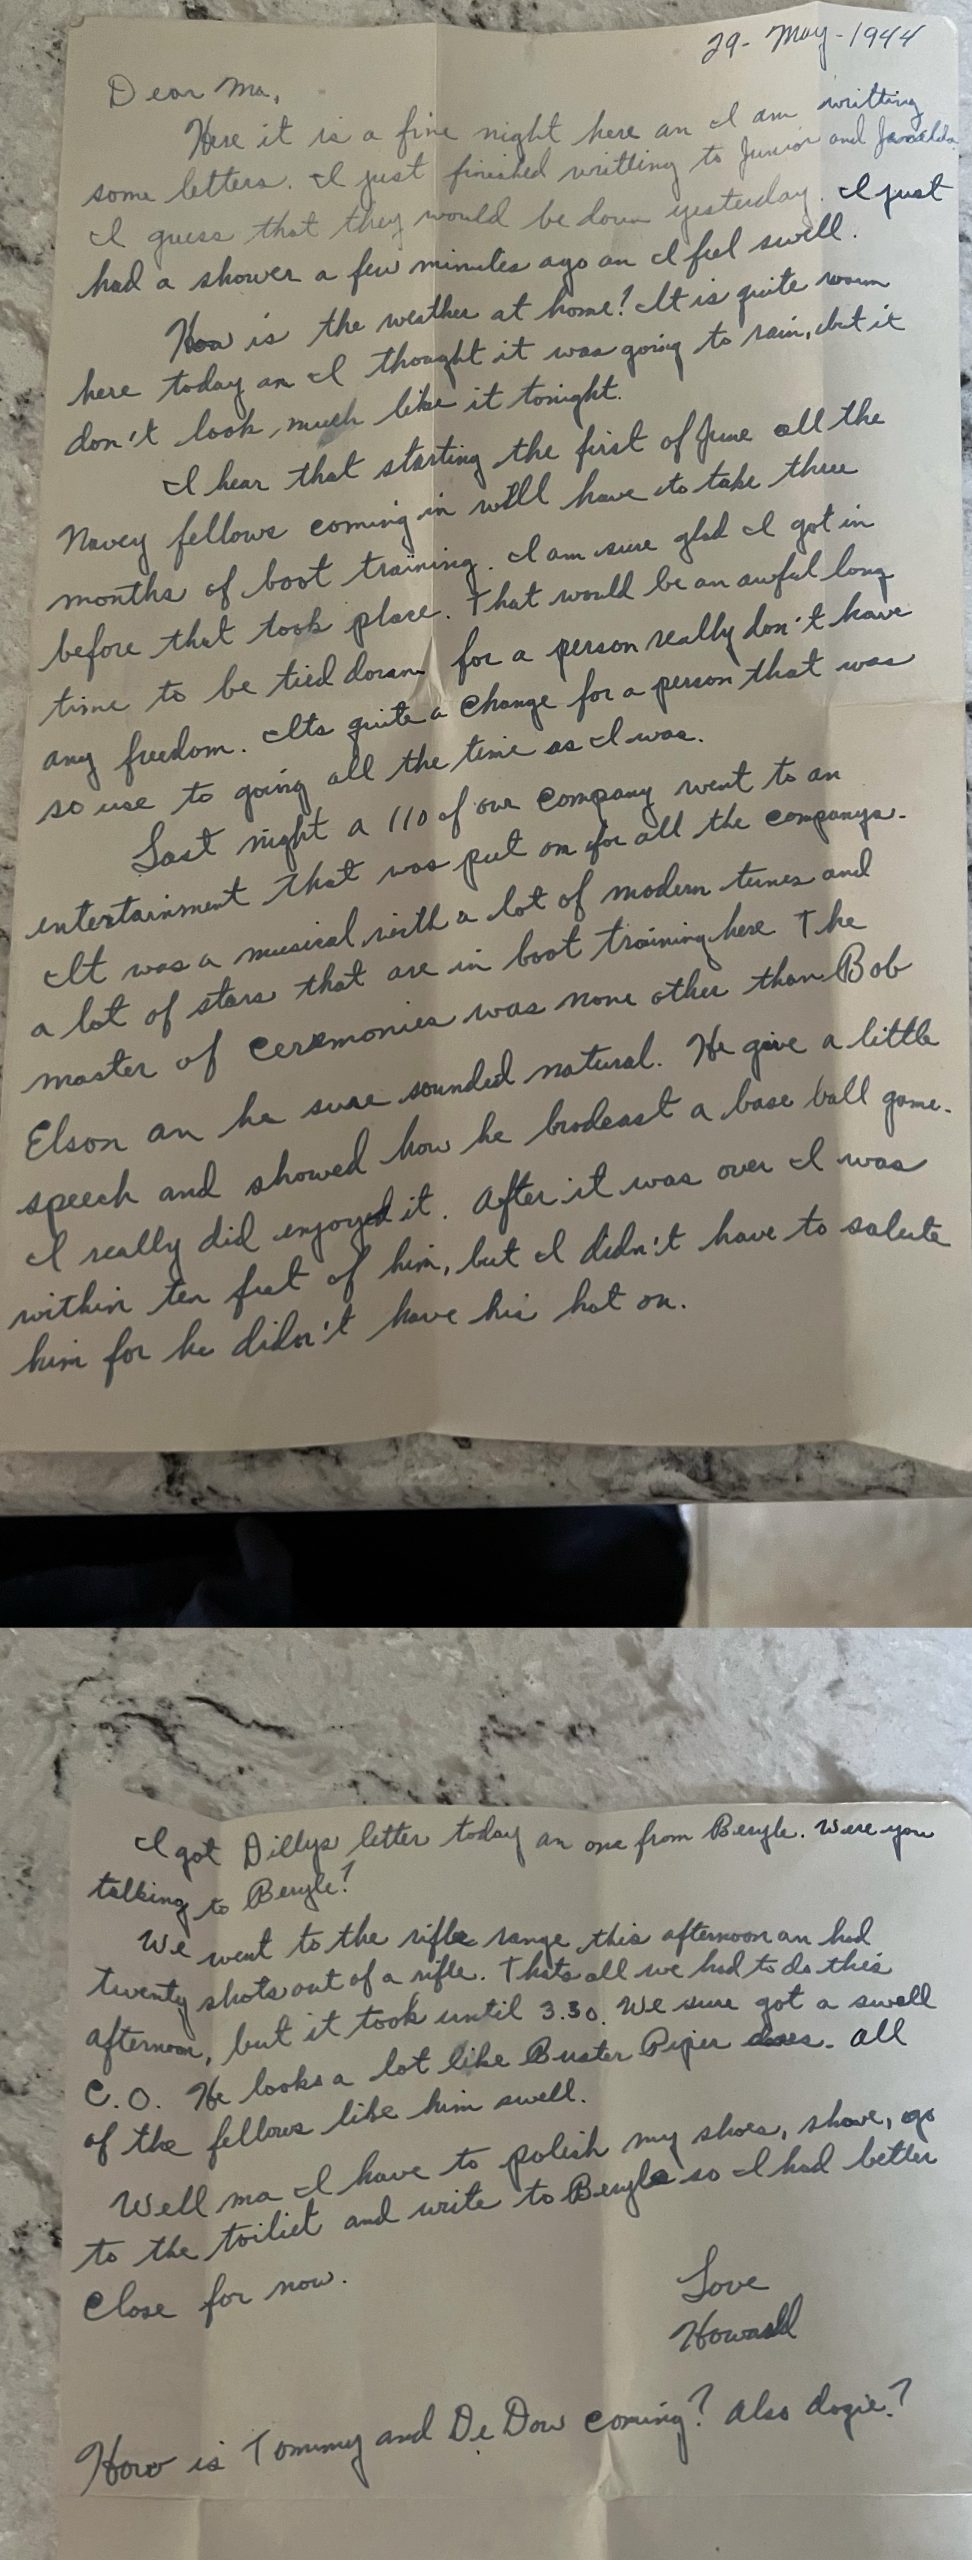 29- May-1944
Dear Ma,
Here it is a fine night here an I am writting
some letters. I just finished writting to Junior and
I guess that they would be down yesterday. I just
had a shower a few minutes ago an I feel swell.
How is the weather at home? It is quite warm
here today an I thought it was going to rain, but it
don't look much like it tonight.
I hear that starting the first of June all the
Navey fellows coming in will have to take three
months of boot training. I am sure glad I got in
before that took place. That would be an awful long
time to be tied down for a person really don't have
any freedom. Its quite a change for a person that was
so use to going all the time as I was.
Last night a 110 of our company went to an
entertainment that was put on for all the companys.
It was a musical with a lot of modern tunes and
a lot of stars that are in boot training here The
master of ceremonies was none other than Bob
Elson an he sure sounded natural. He give a little
speech and showed how he brodcast a base ball game.
I really did enjoyed it. After it was over I was
within ten feet of him, but I didn't have to salute
him for he didn't have his hat on.
I got Dillys letter today an one from Beryle. Were you
talking to Beryle?
We went to the rifle range this afternoon an had
twenty shots out of a rifle. Thats all we had to do this
afternoon, but it took until 3.30. We sure got a swell
C.O. He looks a lot like Buster Piper does. All
of the fellows like him swell.
Well ma I have to polish my shoes, shave, go
to the toiliet and write to Beryle so I had better
close for now.
Love
Howard
How is Tommy and De Dow coming? Also dogie?